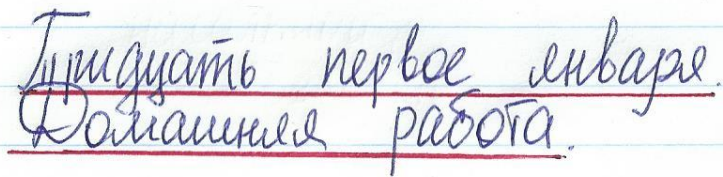 Тридцать первое января.
Домашняя работа.